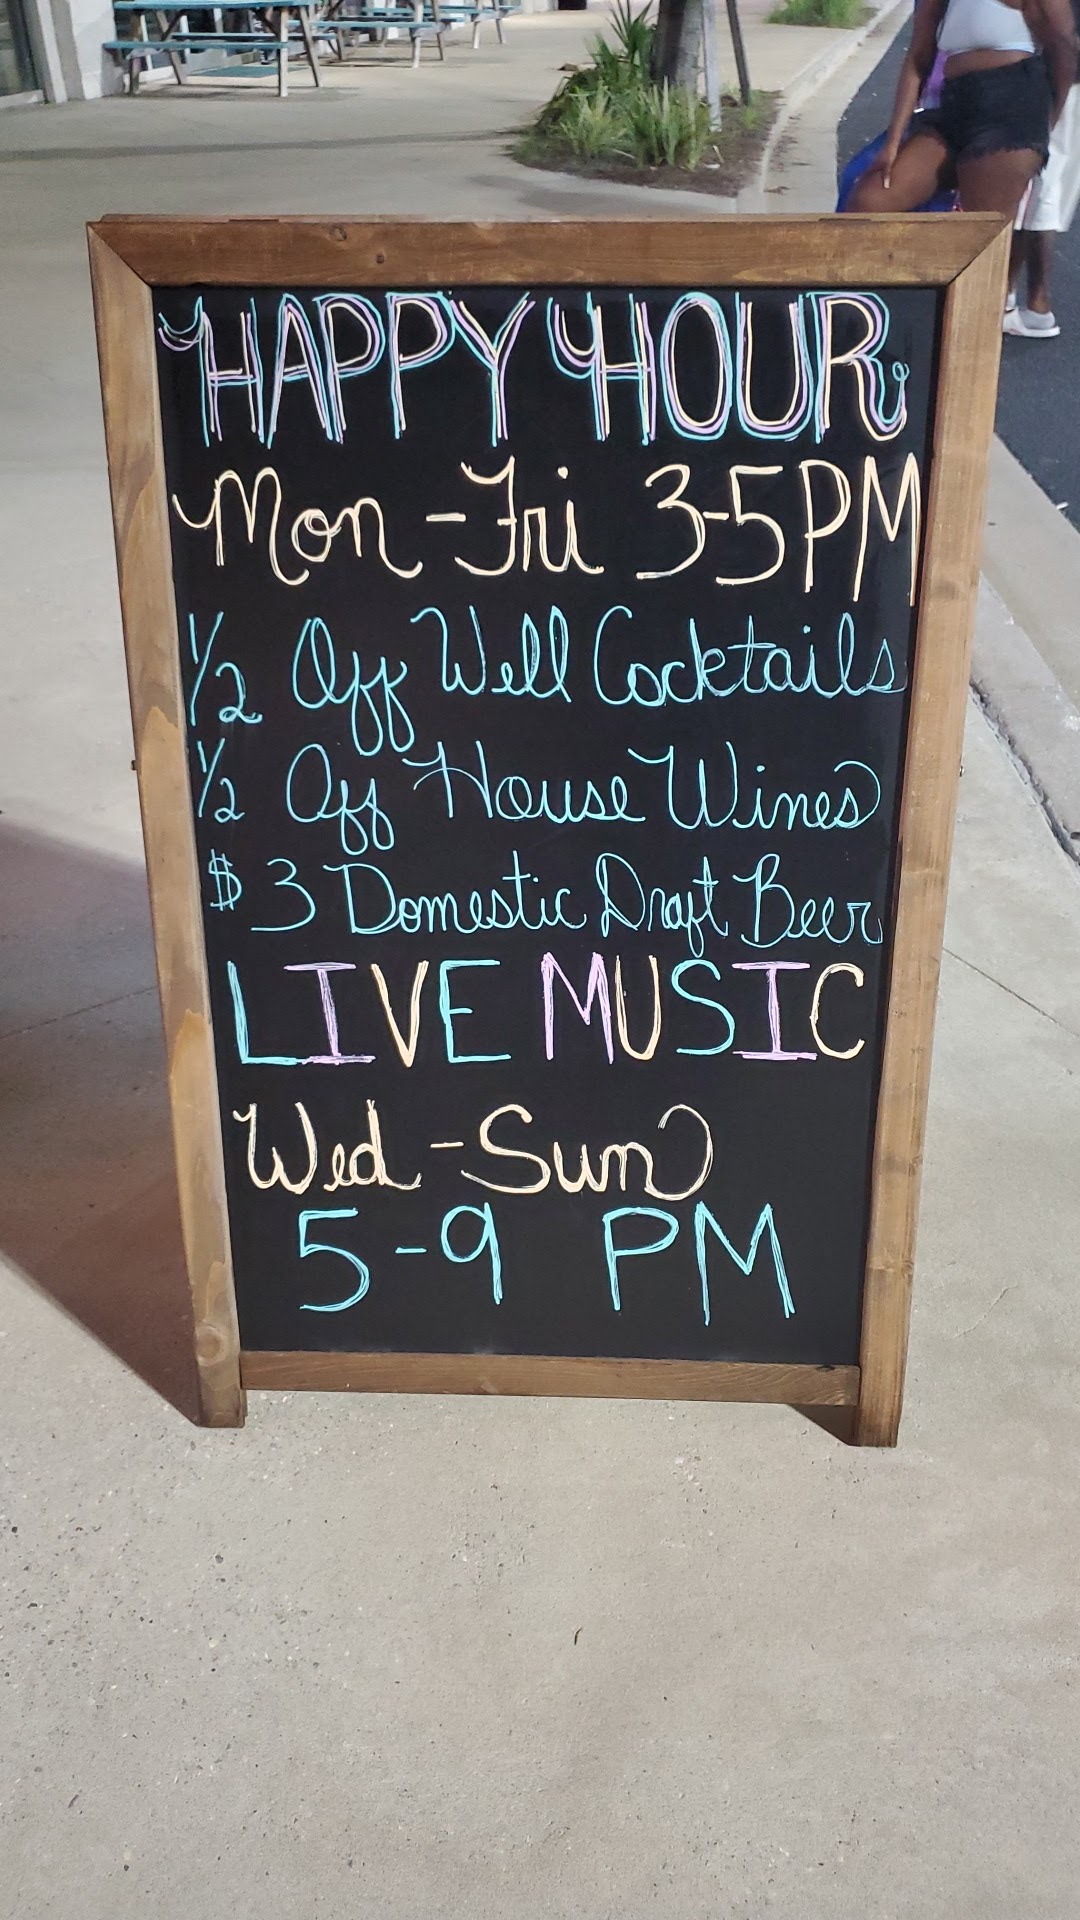 HAPPY HOUR
Mon-Fri 3-5PM
1/2 Off Well Cocktails
1/2 Off House Wines
$3 Domestic Draft Beer
LIVE MUSIC
Wed-Sun
5-9 PM